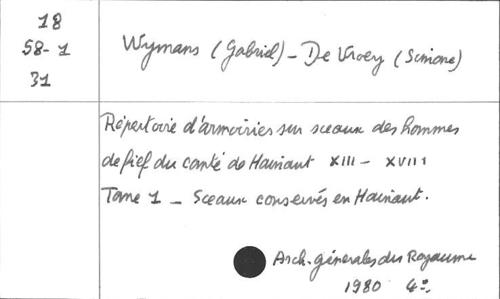 18
58-1
31
Wymans (Gabriel) - De Vroey (Simone)
Répertoire d'armoiries sur sceaux des hommes
de fief du comté de Hainaut XIII - XVIII
Tome 1 - Sceaux conservés en Hainaut.
Arch. générales du Royaume
1980 4°.